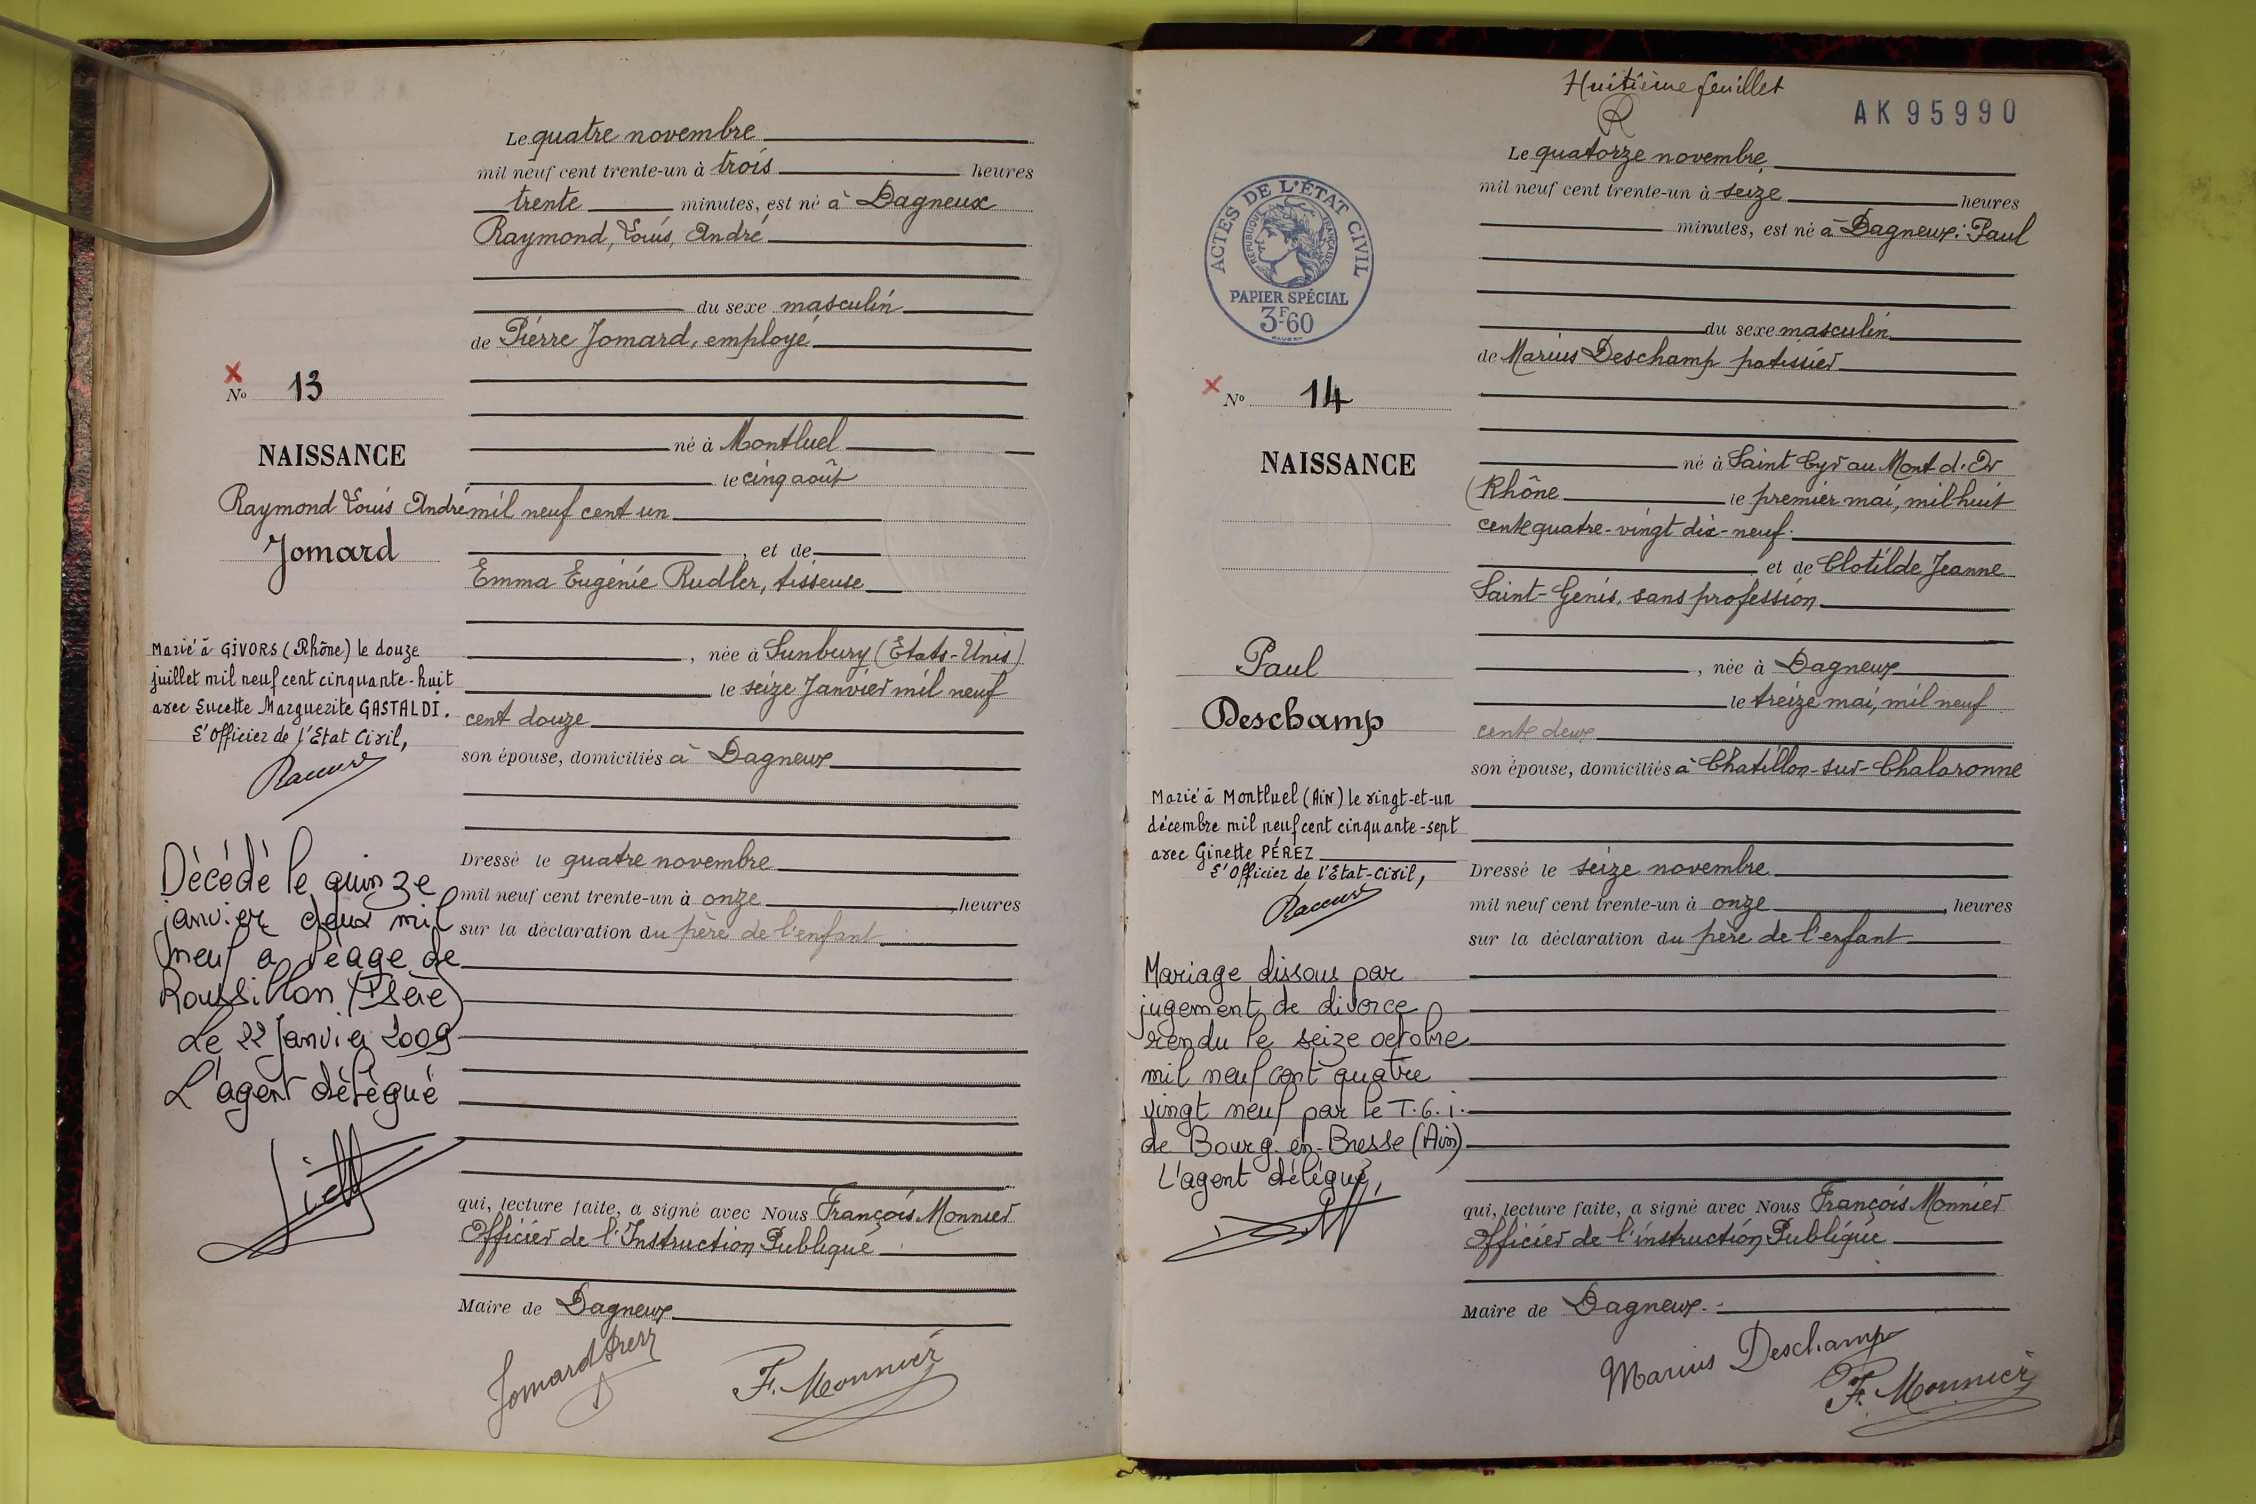 Le quatre novembre
mil neuf cent trente-un à trois heures
trente minutes, est né à Dagneux
Raymond, Louis, André
du sexe masculin
de Pierre Jomard, employé
né à Montluel
le cinq août
mil neuf cent un
, et de
Emma Eugénie Rudler, tisseuse
, née à Sunbury (Etats-Unis)
le seize Janvier mil neuf
cent douze
son épouse, domiciliés à Dagneux
Dressé le quatre novembre
mil neuf cent trente-un à onze, heures
sur la déclaration du père de l'enfant
qui, lecture faite, a signé avec Nous François Monnier
Officier de l'Instruction Publique
Maire de Dagneux
Jomard
F. Monnier
No 13
NAISSANCE
Raymond Louis André
Jomard
Marié à GIVORS (Rhône) le douze
juillet mil neuf cent cinquante-huit
avec Lucette Marguerite GASTALDI.
L'Officier de l'Etat Civil,
Décédé le quinze
janvier deux mil
neuf a Péage de
Roussillon (Isère)
Le 22 Janvier 2009
L'agent délégué
Huitième feuillet
R
AK 95990
ACTES DE L'ÉTAT CIVIL
RÉPUBLIQUE FRANÇAISE
PAPIER SPÉCIAL
3F60
Le quatorze novembre
mil neuf cent trente-un à seize heures
minutes, est né à Dagneux: Paul
du sexe masculin
de Marius Deschamp patissier
né à Saint Cyr au Mont d'Or
(Rhône le premier mai, mil huit
cent quatre-vingt dix-neuf.
et de Clotilde Jeanne
Saint-Genis, sans profession
, née à Dagneux
le treize mai, mil neuf
cent deux
son épouse, domiciliés à Chatillon-sur-Chalaronne
Dressé le seize novembre
mil neuf cent trente-un à onze, heures
sur la déclaration du père de l'enfant
qui, lecture faite, a signé avec Nous François Monnier
Officier de l'instruction Publique
Maire de Dagneux.
Marius Deschamp
F. Monnier
No 14
NAISSANCE
Paul
Deschamp
Marié à Montluel (Ain) le vingt-et-un
décembre mil neuf cent cinquante-sept
avec Ginette PÉREZ
L'Officier de l'Etat-Civil,
Mariage dissous par
jugement de divorce
rendu le seize octobre
mil neuf cent quatre
vingt neuf par le T.G.i.
de Bourg-en-Bresse (Ain)
L'agent délégué,